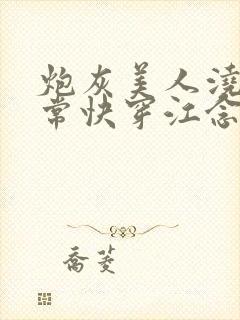 炮灰美人渣
常快穿江念
乔菱